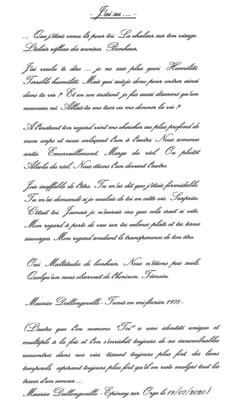 - J'ai su ... -
... Que j'étais venu là pour toi. La chaleur sur ton visage.
L'éclair reflue des sourires. Bonheur.
J'ai voulu te dire ... je ne sais plus quoi. Humilité.
Terrible humilité. Mais qui suis-je donc pour entrer ainsi
dans ta vie ? Et en un instant je fus aussi désarmé qu'un
nouveau né. Allais tu me tuer ou me donner la vie ?
A l'instant ton regard vint me chercher au plus profond de
mon corps et nous enlaçant l'un à l'autre Nous sommes
sortis. Emerveillement. Marge du réel. Ou plutôt
Absolu du réel. Nous étions l'un devant l'autre.
Joie ineffable de l'être. Tu m'as dit que j'étais formidable.
Tu m'as demandé si je voulais de toi en cette vie. Surprise.
C'était toi. Jamais je n'aurais cru que cela irait si vite.
Mon regard à perte de vue sur tes vallons plats et tes terres
sauvages. Mon regard sondant la transparence de ton être.
Oui. Multitudes de bonheur. Nous n'étions pas seuls.
Quelqu'un nous observait de l'horizon. Témoin.
Maurice Dallongeville - Tunis en mi février 1978 -
(L'autre que l'on nomme "Toi" a une identité unique et
multiple à la fois et l'on s'enrichit toujours de ses innombrables
rencontres dans nos vies tissant toujours plus fort des liens
temporels aspirant toujours plus fort qu'ils en sorte malgré tout les
traces d'un amour ...
Maurice Dallongeville - Epinay sur Orge le 19/07/2020)